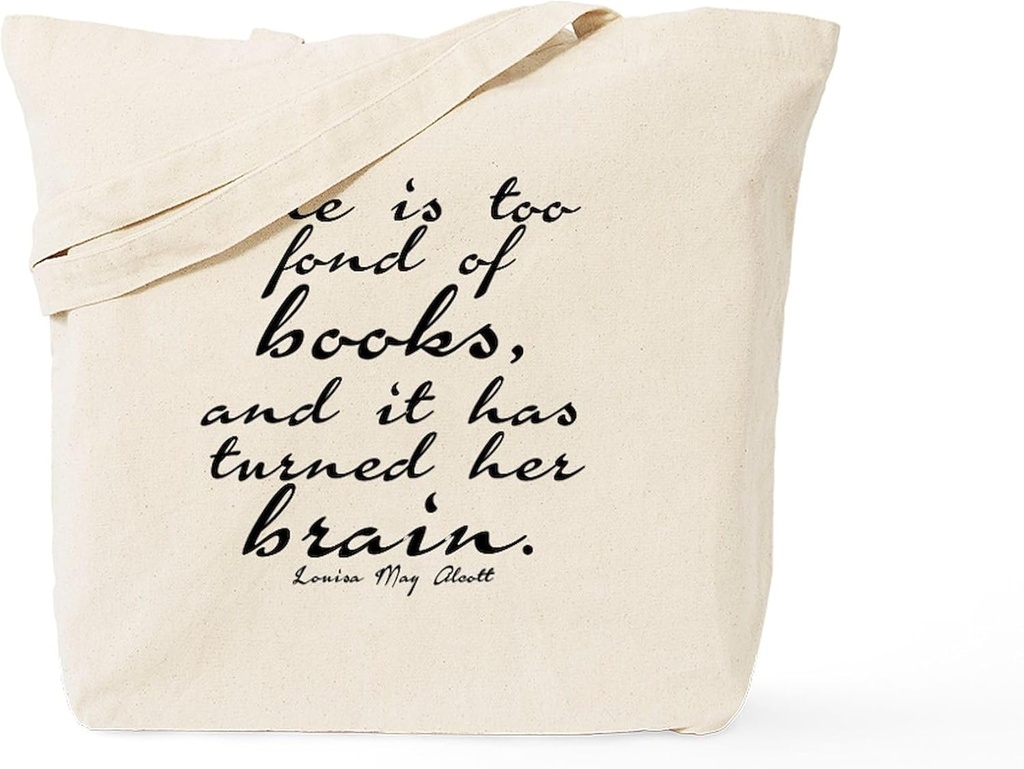 is too
fond of
books,
and it has
turned her
brain.
Louisa May Alcott